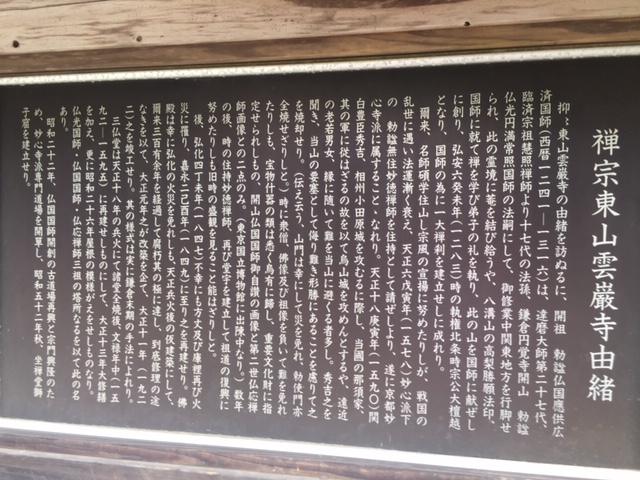 禅宗東山雲巌寺由緒
抑々東山雲巌寺の由緒を訪ぬるに、開祖 勅諡仏国應供広
済国師(西暦一二四一―一三一六)は、達磨大師第二十七代、
臨済宗祖慧照禅師より十七代の法孫、鎌倉円覚寺開山 勅諡
仏光円満常照国師の法嗣にして、御修業中関東地方を行脚せ
られ、此の霊境に菴を結び給うや、八溝山の高梨勝願法印、
国師に就て禅を学び弟子の礼を執り、此の山を国師に献ぜし
に創り、弘安六癸未年(一二八三)時の執権北条時宗公大檀越
となり、国師の為に一大禅刹を建立せしに成れり。
爾来、名師碩学住山し宗風の宣揚に努めたりしが、戦国の
乱世に遇い法運漸く衰え、天正六戊寅年(一五七八)妙心派下
の 勅諡無住妙徳禅師を住持として請ぜしより、遂に京都妙
心寺派に属すること・なれり。天正十八庚寅年(一五九〇)関
白豊臣秀吉、相州小田原城を攻むるに際し、當國の那須家、
其の軍に從はざるの故を以て烏山城を攻めんとするや、遠近
の老若男女、縁に随いて難を当山に避くる者多し。秀吉之を
聞き、当山の要塞として侮り難き形勝にあることを慮りて之
を焼却せり。(伝え云う、山門は幸にして災を免れ、勅使門亦
全焼せざりしと。)時に衆僧、佛像及び祖像を負いて難を免れ
たりしも、宝物什器の類は悉く烏有に歸し、重要文化財に指
定せられしもの、開山仏国国師御自讃の画像と第二世仏応禅
師画像との二点のみ。(東京国立博物館に出陳中なり。)数年
の後、時の住持妙徳禅師、再び堂宇を建立して祖道の復興に
努めたりしも旧時の盛観を見ること能はざりしと。
後、弘化四丁未年(一八四七)不幸にも方丈及び庫裡再び火
災に罹り、嘉永二己酉年(一八四九)に至り之を再建せり。佛
殿は幸に弘化の火災を免れしも、天正兵火後の仮建築にして、
爾来三百有余年を経過して腐朽其の極に達し、到底修理の途
なきを以て、大正元年之が改築を企て、大正十一年(一九二
二)之を竣工せり。其の様式は実に鎌倉末期の手法によれり。
三仏堂は天正十八年の兵火にて諸堂全焼後、文禄年中(一五
九二―一五九五)に再建せしものにして、大正十三年大修繕
を加え、更に昭和二十六年屋根の模様がえをせしもの。
仏光国師・仏国国師、仏応禅師三祖の塔所なるを以て此の名
あり。
昭和二十一年、仏国国師開創の古道場再興と宗門興隆のた
め、妙心寺派専門道場を開単し、昭和五十三年秋、坐禅堂獅
子窟を建立せり。